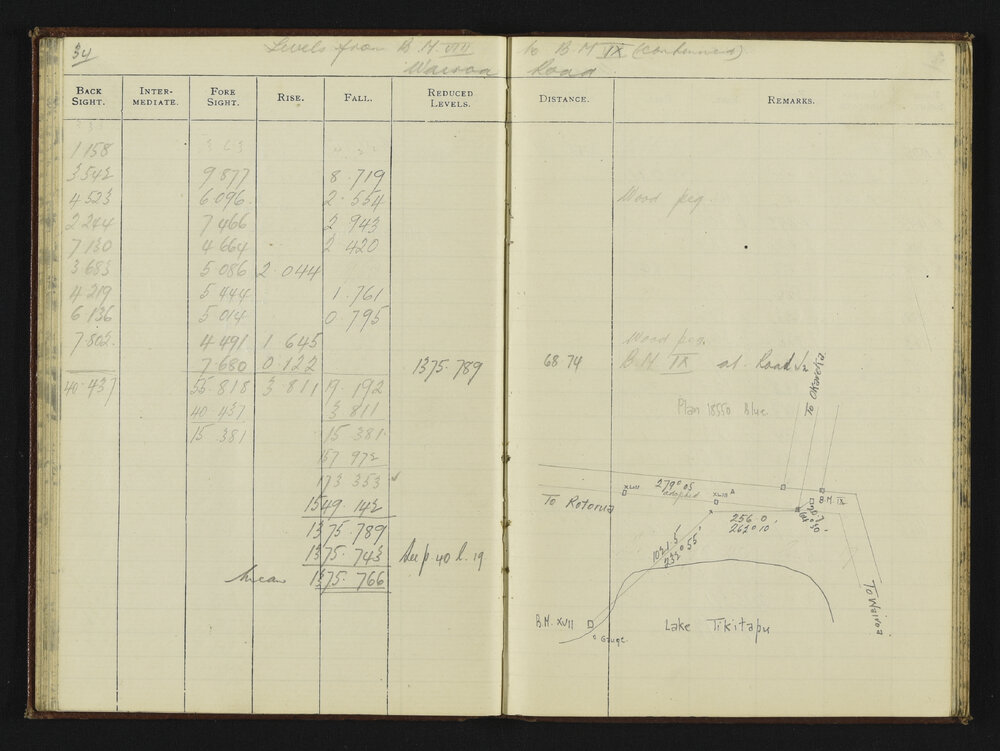 34 Levels from B.M. VIII to B.M IX (continued)
Wairoa Road
BACK SIGHT. INTER-MEDIATE. FORE SIGHT. RISE. FALL. REDUCED LEVELS. DISTANCE. REMARKS.
1 158
3 542 9 877 8 719
4 523 6 096 2 554 Wood peg
2 244 7 466 2 943
7 130 4 664 2 420
3 683 5 086 2 044
4 219 5 444 1 761
6 136 5 014 0 795
7 802 4 491 1 645 Wood peg.
7 680 0 122 1375.789 68.74 B.M. IX at Road
40 437 55 818 3 811 19 192
40 437 3 811
15 381 15 381
157 972
173 353
1549.142
1375.789
1375.743 See p. 40 l. 19
Mean 1375.766
Plan 18550 Blue
To Okareka
279° 05
adopted
XVIII
B.M. IX
To Rotorua
256 0
262° 10
1021.5
232° 55'
To Wairoa
B.M. XVII
Gauge.
Lake Tikitapu